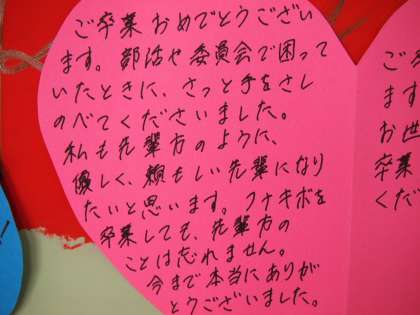 ご卒業おめでとうござい
ます。部活や委員会で困って
いたときに、さっと手をさし
のべてくださいました。
私も先輩方のように、
優しく、頼もしい先輩になり
たいと思います。フナキボを
卒業しても、先輩方の
ことは忘れません。
今まで本当にありが
とうございました。
ご卒
ます
お世
卒業
くだ